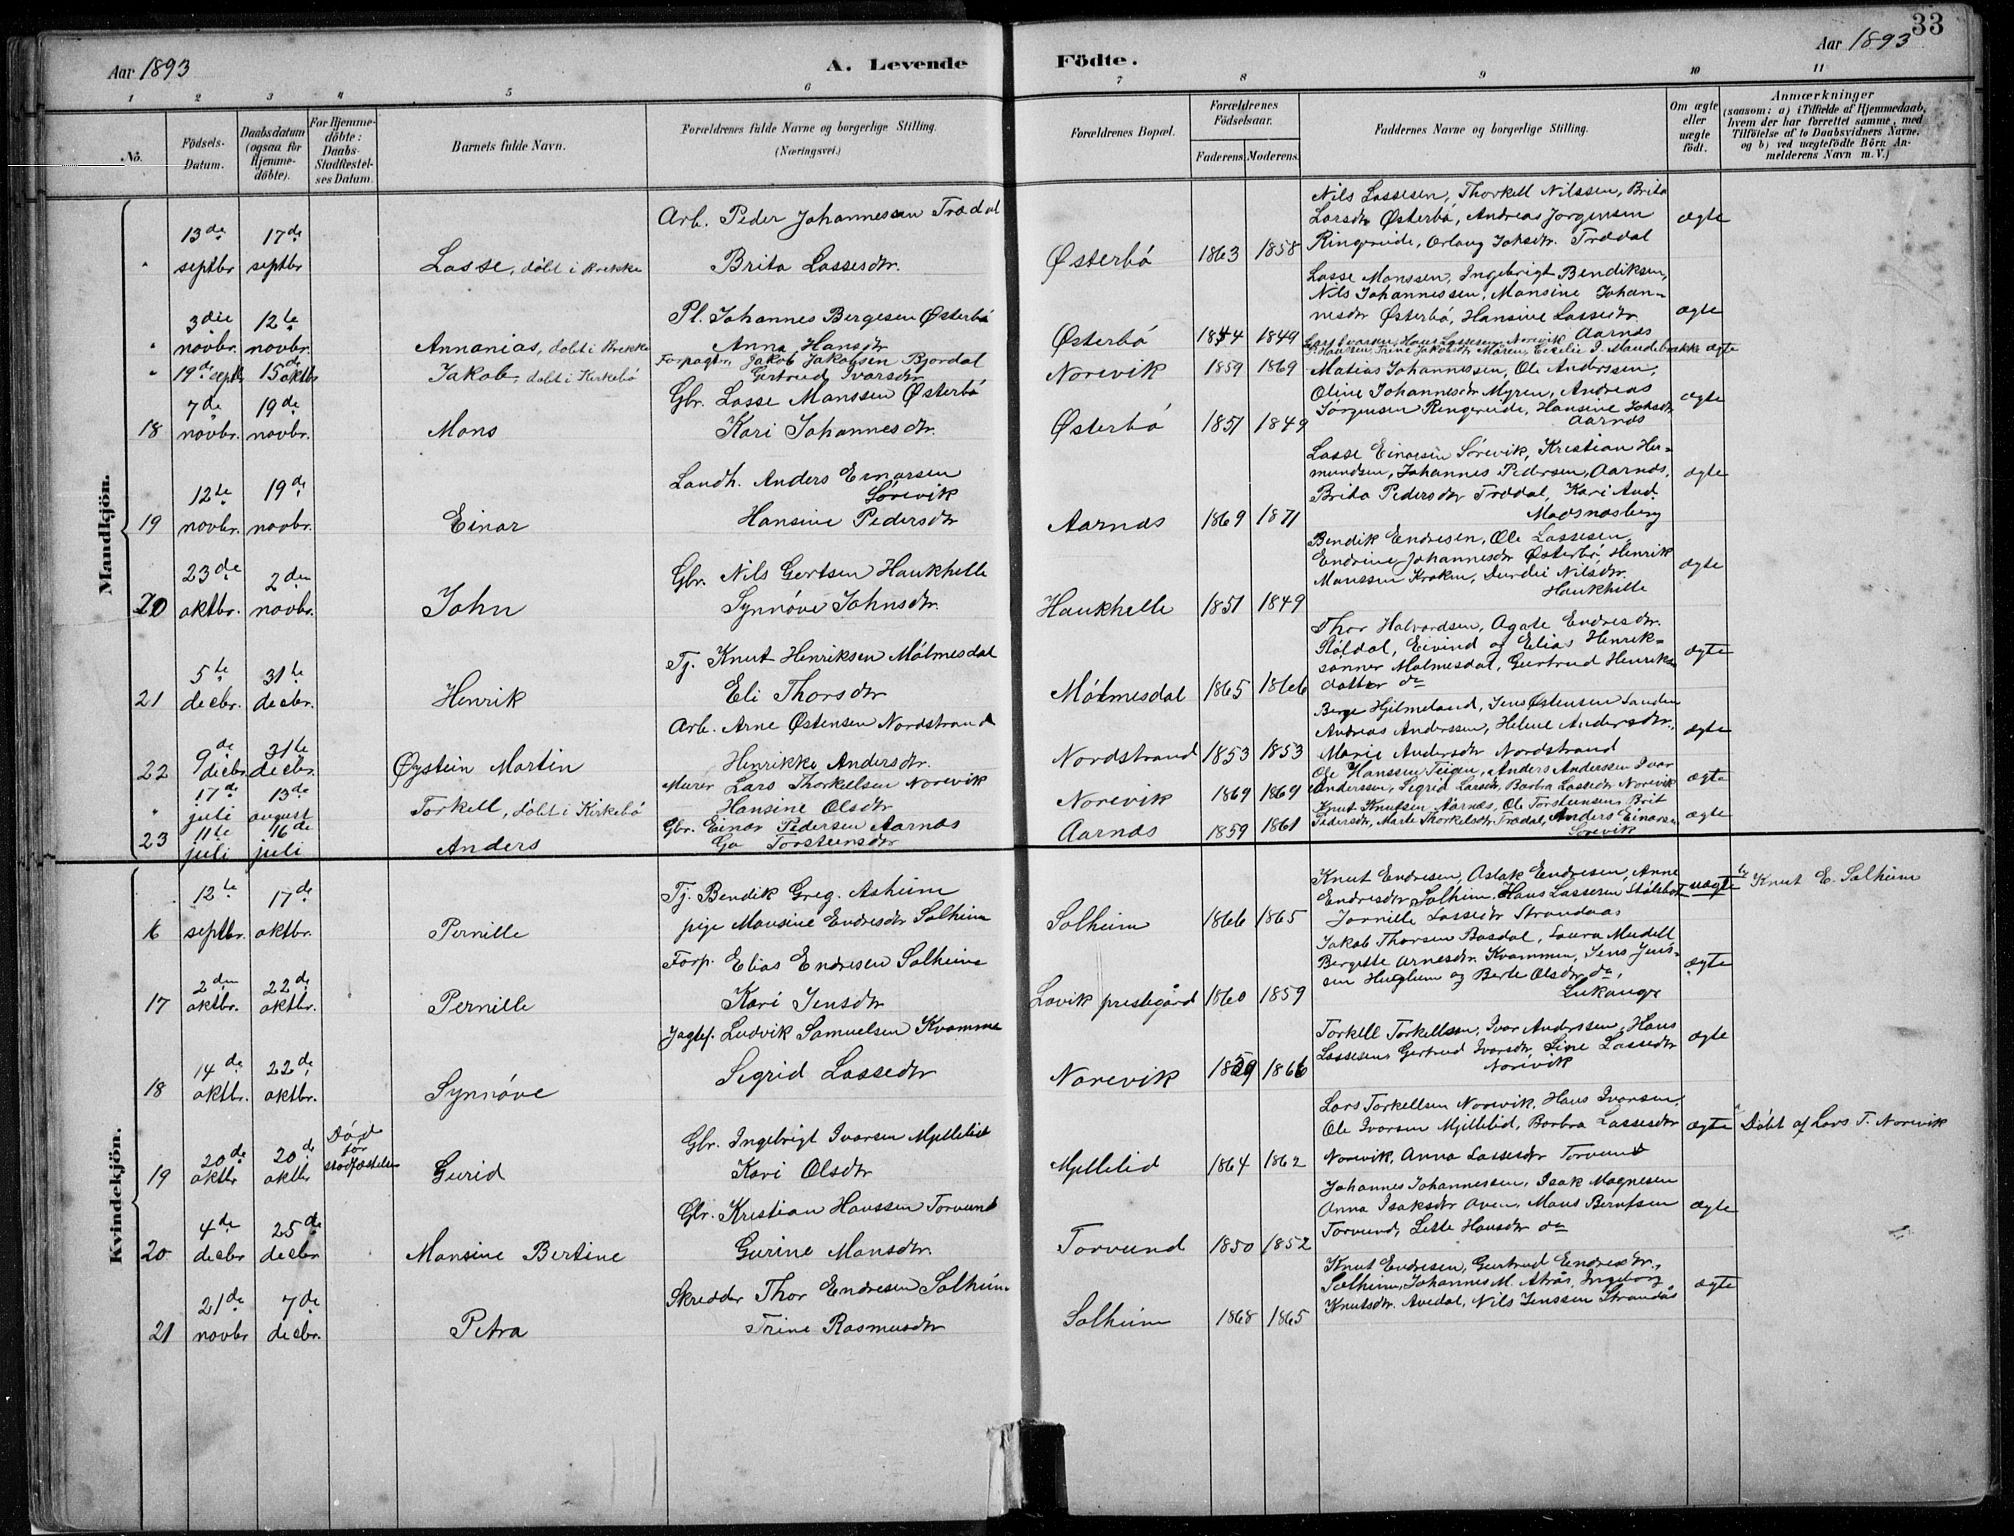 33
Aar 1893
A. Levende Födte.
Aar 1893
1 2 3 4 5 6 7 8 9 10 11
No.
Födsels-Datum.
Daabsdatum (ogsaa for Hjemme-döbte).
For Hjemme-döbte: Daabs-Stadfæstel-ses Datum.
Barnets fulde Navn.
Forældrenes fulde Navne og borgerlige Stilling. (Næringsvei.)
Forældrenes Bopæl.
Forældrenes Födselsaar.
Faderens. Moderens.
Faddernes Navne og borgerlige Stilling.
Om ægte eller uægte födt.
Anmærkninger
(saasom: a) i Tilfælde af Hjemmedaab, hvem der har forrettet samme, med Tilföielse af to Daabsvidners Navne. og b) ved uægtefödte Börn Anmelderens Navn m. V.)
Mandkjön.
" 13de septbr 17de septbr
Lasse, döbt i Brekke
Arb. Peder Johannessen Trædal
Brita Lassesdtr.
Østerbö 1863 1858
Nils Lassesen, Thorkell Nilssen, Brita
Larsdtr Østerbö, Andreas Jørgensen
Ringereide, Johsdtr. Trædal
ægte
" 3die novbr. 12te novbr.
Annanias, döbt i Brekke
Pl. Johannes Bergesen Østerbö
Anna Hansdtr
Østerbö 1844 1849
Lasse Monssen, Ingebrigt Bendiksen,
Nils Johannessen, Monsine Johan-
nesdtr Østerbö, Hansine Lassesdtr.
Aarnæs
ægte
" 19de septbr 15de oktbr
Jakob, döbt i Kirkebö
Forpagtr. Jakob Jakobsen Bjordal
Gertrud Ivarsdtr
Norevik 1859 1869
Lars Ivarsen, Hans Lassesen Norevik
ægte
18 7de novbr. 19de novbr.
Mons
Gbr. Lasse Monssen Østerbö
Kari Johannesdtr.
Østerbö 1851 1849
Matias Johannessen, Ole Anderssen,
Oline Johannesdtr Myren, Andreas
Jørgensen Ringereide, Hansine Johsdtr
Aarnæs
ægte
19 12te novbr. 19de novbr.
Einar
Landh. Anders Einarsen
Sörevik
Hansine Pedersdtr
Aarnæs 1869 1871
Lasse Einarsen Sörevik, Kristian Her-
mundsen, Johannes Pedersen, Aarnæs,
Brita Pedersdtr Trædal, Kari And.
Madsnæsberg
ægte
20 23de oktbr. 2den novbr.
John
Gbr. Nils Gertsen Haukhelle
Synnöve Johnsdtr.
Haukhelle 1851 1849
Bendik Endresen, Ole Lassesen,
Endrine Johannesdtr Østerbö, Henrik
Monssen Kroken, Durdei Nilsdtr.
Haukhelle
ægte
21 5te decbr. 31te decbr.
Henrik
Tj. Knut Henriksen Mölmesdal
Eli Thorsdtr
Mölmesdal 1865 1866
Thor Halvordsen, Agate Endresdtr.
Støldal, Eivind og Elias Henrik-
sönner Mölmesdal, Gertrud Henriks
datter do
ægte
22 9de decbr. 31te decbr.
Øystein Martin
Arb. Arne Østensen Nordstrand
Henrikke Andersdtr.
Nordstrand 1853 1853
Berge Hjelmeland, Jens Østensen Sanden
Andreas Anderssen, Helene Andersdtr.,
Marie Andersdtr Nordstrand
ægte
" 17de juli 13de august
Torkell, döbt i Kirkebö
Murer Lars Thorkellsen Norevik
Hansine Olsdtr
Norevik 1869 1869
Ole Hanssen Teigen, Anders Anderssen, Ivar
Anderssen, Sigrid Larsdtr, Barbra Lassesdtr Norevik
ægte
23 11te juli 16de juli
Anders
Gbr. Einar Pedersen Aarnæs
Torsteinsdtr
Aarnæs 1859 1861
Knut Knutsen Aarnæs, Ole Torsteinsen, Brit
Pedersdtr, Marte Thorkelsdtr Trædal, Anders Einarsen
Sörevik
ægte
Kvindekjön.
16 12te septbr. 17de oktbr.
Pernille
Tj. Bendik Greg. Asheim
pige Monsine Endresdtr Solheim
Solheim 1866 1865
Knut Endresen, Aslak Endresen, Anne
Endresdtr Solheim, Hans Lassesen
Jornille Lassesdtr Strandaas
uægte
Knut E. Solheim
17 2den oktbr. 22de oktbr.
Pernille
Forp. Elias Endresen Solheim
Kari Jensdtr
Lavik prestegård 1860 1859
Jakob Thorsen Bøsdal, Laura Meidell
Bergitte Arnesdtr Kvammen, Jens Jens-
sen Huglum og Berte Olsdtr do,
Leikanger
ægte
18 14de oktbr. 22de oktbr.
Synnöve
Jagtef. Ludvik Samuelsen Kvamme
Sigrid Lassesdtr
Norevik 1859 1866
Torkell Torkellsen, Ivar Anderssen, Hans
Lassesen, Gertrud Ivarsdtr, Sine Lassesdtr
Norevik
ægte
19 20de oktbr 20de oktbr Död för stadfæstelsen
Gurid
Gbr. Ingebrigt Ivarsen Mjellelid
Kari Olsdtr
Mjellelid 1864 1862
Lars Torkellsen Norevik, Hans Ivarsen,
Ole Ivarsen Mjellelid, Barbra Lassesdtr
Norevik, Anna Lassesdtr Torvund
ægte
Döbt af Lars T. Norevik
20 4de decbr 25de decbr
Monsine Bertine
Gbr. Kristian Hanssen Torvund
Gurine Monsdtr.
Torvund 1850 1852
Johannes Johannessen, Isak Magnesen
Anna Isaksdtr Aven, Mons Berntsen
Torvund, Lette Hansdtr do
ægte
21 21de novbr 7de decbr.
Petra
Skredder Thor Endresen Solheim
Trine Rasmusdtr
Solheim 1868 1865
Knut Endresen, Gertrud Endresdtr.,
Solheim, Johannes M. Atrås, Ingeborg
Knutsdtr. Avedal, Nils Jenssen Strandås
ægte